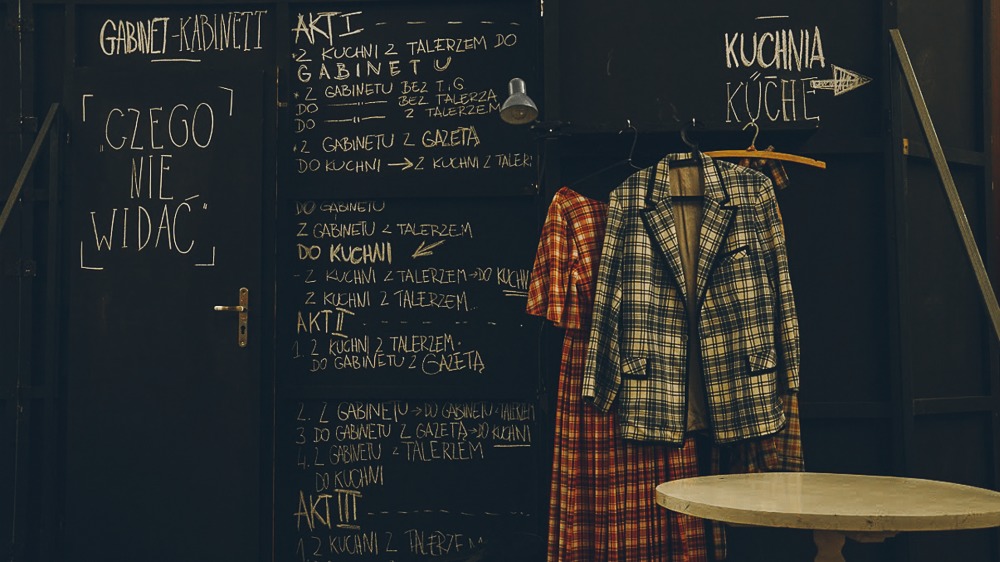 GABINET-KABINETT
"CZEGO
NIE
WIDAĆ"
AKT I
2 KUCHNI Z TALERZEM DO
GABINETU
Z GABINETU BEZ T,G
DO BEZ TALERZA
DO Z TALERZEM
Z GABINETU Z GAZETĄ
DO KUCHNI → Z KUCHNI Z TALER
DO GABINETU
Z GABINETU Z TALERZEM
DO KUCHNI
- Z KUCHNI Z TALERZEM → DO KUCHNI
Z KUCHNI Z TALERZEM
AKT II
1. Z KUCHNI Z TALERZEM
DO GABINETU Z GAZETĄ
2. Z GABINETU → DO GABINETU Z TALERZEM
3 DO GABINETU Z GAZETĄ → DO KUCHNI
4. Z GABINETU Z TALERZEM
DO KUCHNI
AKT III
1 Z KUCHNI Z TALERZEM
KUCHNIA
KÜCHE